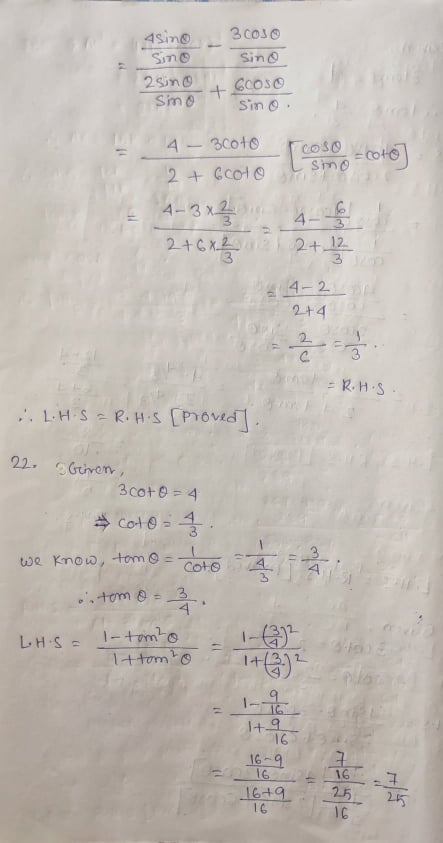 = (4sinθ/sinθ - 3cosθ/sinθ) / (2sinθ/sinθ + 6cosθ/sinθ).
= (4 - 3cotθ) / (2 + 6cotθ) [cosθ/sinθ = cotθ]
= (4 - 3 × 2/3) / (2 + 6 × 2/3) = (4 - 6/3) / (2 + 12/3)
= (4 - 2) / (2 + 4)
= 2/6 = 1/3.
= R.H.S.
∴ L.H.S = R.H.S [Proved].
22. Given,
3cotθ = 4
⇒ cotθ = 4/3.
we know, tanθ = 1/cotθ = 1/(4/3) = 3/4.
∴ tanθ = 3/4.
L.H.S = (1 - tan²θ) / (1 + tan²θ) = (1 - (3/4)²) / (1 + (3/4)²)
= (1 - 9/16) / (1 + 9/16)
= ((16-9)/16) / ((16+9)/16) = (7/16) / (25/16) = 7/25